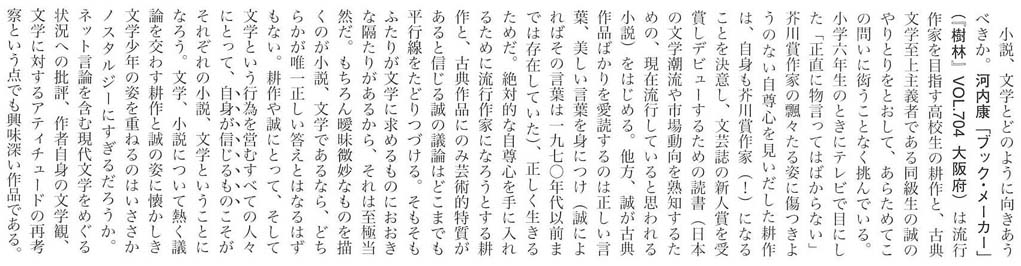 小説、文学とどのように向きあう
べきか。河内康「ブック・メーカー」
(『樹林』VOL.704 大阪府)は流行
作家を目指す高校生の耕作と、古典
文学至上主義者である同級生の誠の
やりとりをとおして、あらためてこ
の問いに衒うことなく挑んでいる。
小学六年生のときにテレビで目にし
た「正直に物言ってはばからない」
芥川賞作家の飄々たる姿に傷つきよ
うのない自尊心を見いだした耕作
は、自身も芥川賞作家(!)になる
ことを決意し、文芸誌の新人賞を受
賞しデビューするための読書(日本
の文学潮流や市場動向を熟知するた
めの、現在流行していると思われる
小説)をはじめる。他方、誠が古典
作品ばかりを愛読するのは正しい言
葉、美しい言葉を身につけ(誠によ
ればその言葉は一九七〇年代以前ま
では存在していた)、正しく生きる
ためだ。絶対的な自尊心を手に入れ
るために流行作家になろうとする耕
作と、古典作品にのみ芸術的特質が
あると信じる誠の議論はどこまでも
平行線をたどりつづける。そもそも
ふたりが文学に求めるものにおおき
な隔たりがあるから、それは至極当
然だ。もちろん曖昧微妙なものを描
くのが小説、文学であるなら、どち
らかが唯一正しい答えとはなるはず
もない。耕作や誠にとって、そして
文学という行為を営むすべての人々
にとって、自身が信じるものこそが
それぞれの小説、文学ということに
なろう。文学、小説について熱く議
論を交わす耕作と誠の姿に懐かしき
文学少年の姿を重ねるのはいささか
ノスタルジーにすぎるだろうか。
ネット言論を含む現代文学をめぐる
状況への批評、作者自身の文学観、
文学に対するアティチュードの再考
察という点でも興味深い作品である。